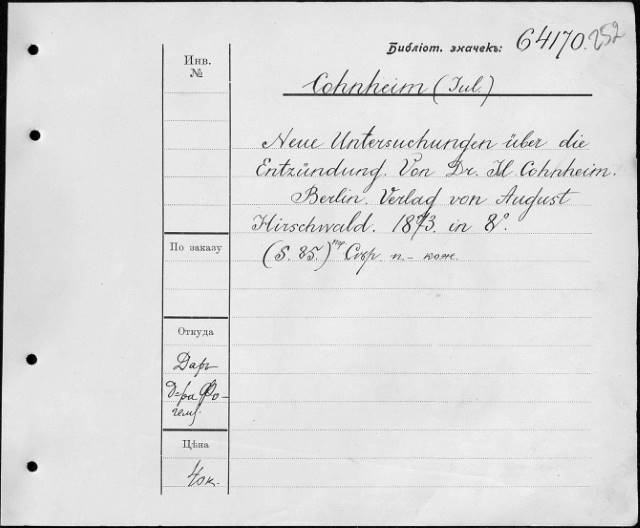 Библіот. значекъ: 64170. 252
Инв. №
Cohnheim (Jul.)
Neue Untersuchungen über die
Entzündung. Von Dr. Jul. Cohnheim.
Berlin. Verlag von August
Hirschwald. 1873. in 8º.
(S. 85.) Совр. п.- кож.
По заказу
Откуда
Даръ
д-ра Фо-
геля
Цѣна
40к.